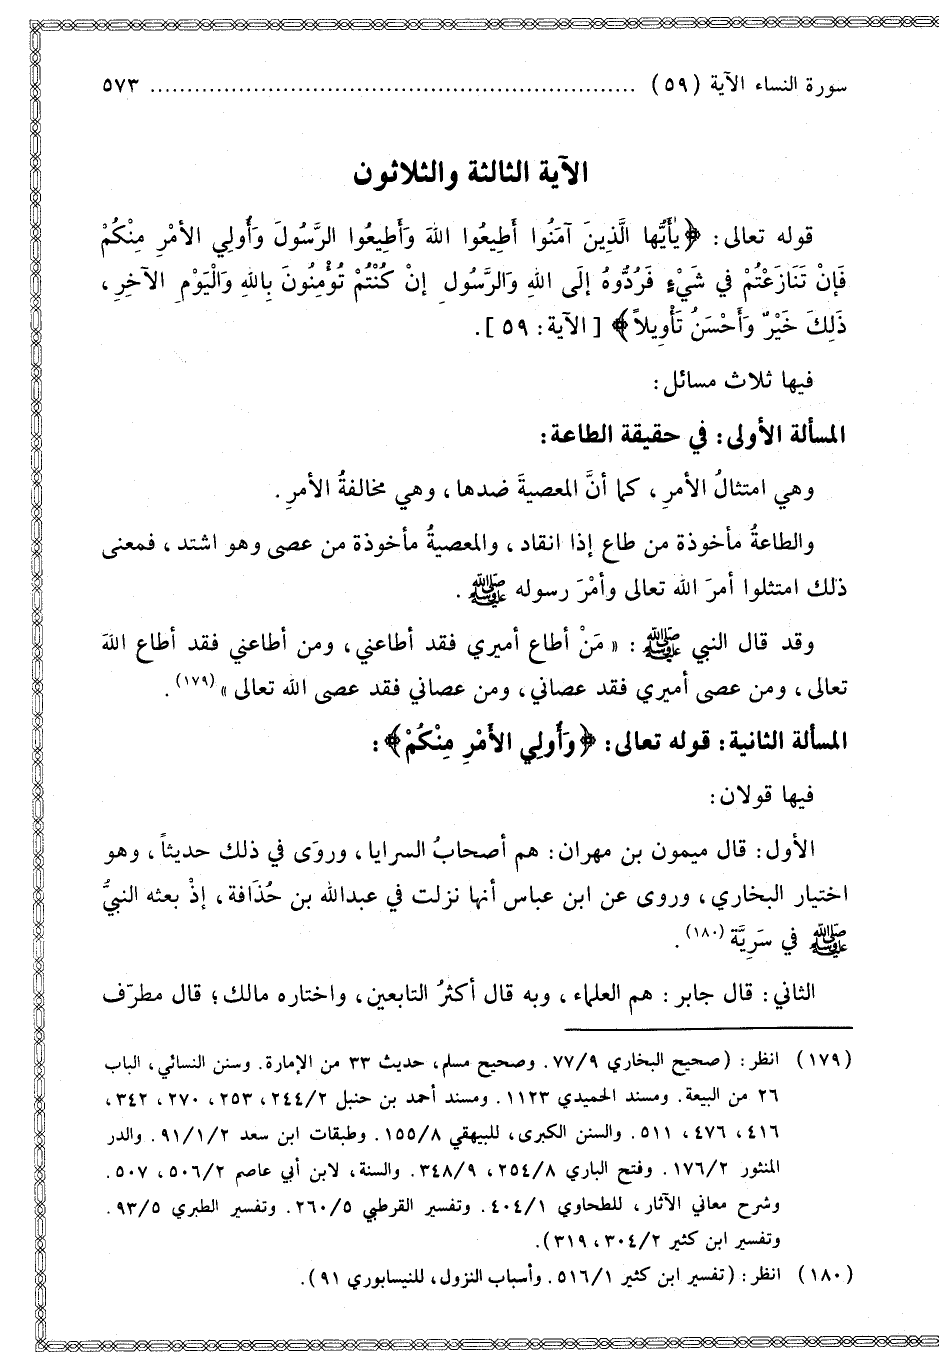 سورة النساء الآية (٥٩) ................................................................ ٥٧٣
الآية الثالثة والثلاثون
قوله تعالى: ﴿يٰأَيُّها الَّذِينَ آمَنُوا أَطِيعُوا اللهَ وَأَطِيعُوا الرَّسُولَ وَأُولِي الأَمْرِ مِنْكُمْ
فَإِنْ تَنَازَعْتُمْ فِي شَيْءٍ فَرُدُّوهُ إِلَى اللهِ وَالرَّسُولِ إِنْ كُنْتُمْ تُؤْمِنُونَ بِاللهِ وَالْيَوْمِ الآخِرِ،
ذَلِكَ خَيْرٌ وَأَحْسَنُ تَأْوِيلاً﴾ [الآية: ٥٩].
فيها ثلاث مسائل:
المسألة الأولى: في حقيقة الطاعة:
وهي امتثالُ الأمرِ، كما أنَّ المعصيةَ ضدها، وهي مخالفةُ الأمرِ.
والطاعةُ مأخوذة من طاع إذا انقاد، والمعصيةُ مأخوذة من عصى وهو اشتد، فمعنى
ذلك امتثلوا أمرَ الله تعالى وأمْرَ رسوله ﷺ.
وقد قال النبي ﷺ: «مَنْ أطاع أميري فقد أطاعني، ومن أطاعني فقد أطاع اللهَ
تعالى، ومن عصى أميري فقد عصاني، ومن عصاني فقد عصى الله تعالى» (١٧٩).
المسألة الثانية: قوله تعالى: ﴿وَأُولِي الأَمْرِ مِنْكُمْ﴾:
فيها قولان:
الأول: قال ميمون بن مهران: هم أصحابُ السرايا، وروَى في ذلك حديثاً، وهو
اختيار البخاري، وروى عن ابن عباس أنها نزلت في عبدالله بن حُذَافة، إذْ بعثه النبيُّ
ﷺ في سَرِيَّة (١٨٠).
الثاني: قال جابر: هم العلماء، وبه قال أكثرُ التابعين، واختاره مالك؛ قال مطرّف
(١٧٩) انظر: (صحيح البخاري ٧٧/٩. وصحيح مسلم، حديث ٣٣ من الإمارة. وسنن النسائي، الباب
٢٦ من البيعة. ومسند الحميدي ١١٢٣. ومسند أحمد بن حنبل ٢٤٤/٢، ٢٥٣، ٢٧٠، ٣٤٢،
٤١٦، ٤٧٦، ٥١١. والسنن الكبرى، للبيهقي ١٥٥/٨. وطبقات ابن سعد ٩١/١/٢. والدر
المنثور ١٧٦/٢. وفتح الباري ٢٥٤/٨، ٣٤٨/٩. والسنة، لابن أبي عاصم ٥٠٦/٢، ٥٠٧.
وشرح معاني الآثار، للطحاوي ٤٠٤/١. وتفسير القرطبي ٢٦٠/٥. وتفسير الطبري ٩٣/٥.
وتفسير ابن كثير ٣٠٤/٢، ٣١٩).
(١٨٠) انظر: (تفسير ابن كثير ٥١٦/١. وأسباب النزول، للنيسابوري ٩١).